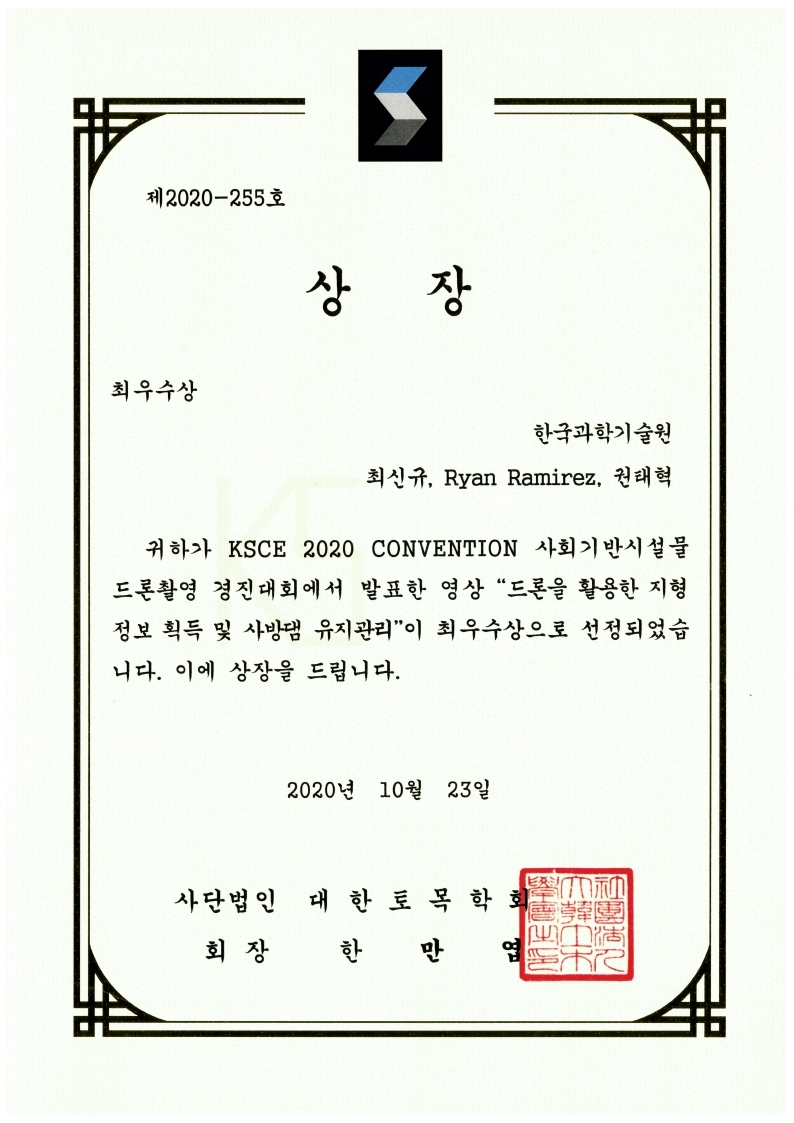 제2020-255호
상 장
최우수상
한국과학기술원
최신규, Ryan Ramirez, 권태혁
귀하가 KSCE 2020 CONVENTION 사회기반시설물
드론촬영 경진대회에서 발표한 영상 “드론을 활용한 지형
정보 획득 및 사방댐 유지관리”이 최우수상으로 선정되었습
니다. 이에 상장을 드립니다.
2020년 10월 23일
사단법인 대한토목학회
회장 한만엽
社團法人
大韓土木
學會之印